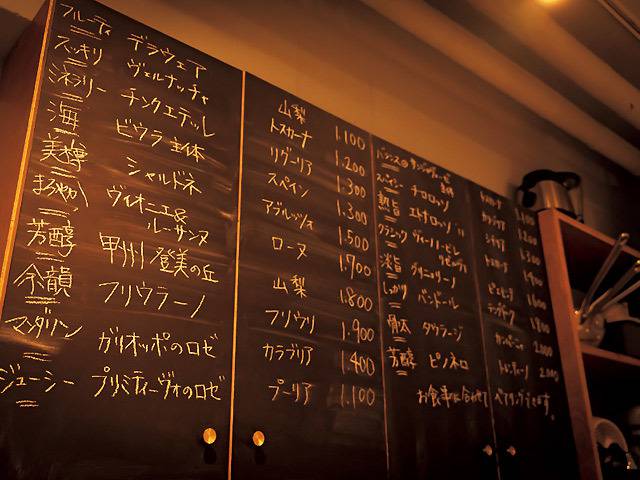 フルーティ デラウェア 山梨 1.100
スッキリ ヴェルナッチャ トスカーナ 1.200
ミネラリー チンクエテッレ リグーリア 1.300
海 ビウラ主体 スペイン 1.300
美樽 シャルドネ アブルッツォ 1.500
まろやか ヴィオニエ&ルーサンヌ ローヌ 1.700
芳醇 甲州/登美の丘 山梨 1.800
余韻 フリウラーノ フリウリ 1.900
マンダリン ガリオッポのロゼ カラブリア 1.400
ジューシー プリミティーヴォのロゼ プーリア 1.100
バランス
チロロッソ
熟旨 エトナロッソ シチリア
クラシック
しっかり バンドール
骨太 タウラージ カンパーニャ 2.000
芳醇 ピノネロ 2.000
お食事に合わせて ペアリングできます。